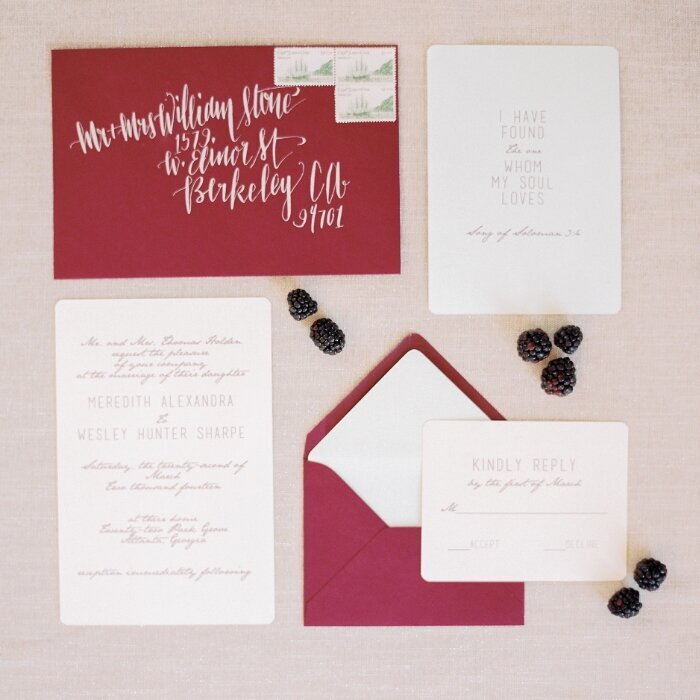 Mr + Mrs William Stone
1579
W. Elinor St
Berkeley CA
94701
I HAVE
FOUND
the one
WHOM
MY SOUL
LOVES
Song of Solomon 3:4
Mr. and Mrs. Thomas Holden
request the pleasure
of your company
at the marriage of their daughter
MEREDITH ALEXANDRA
to
WESLEY HUNTER SHARPE
Saturday, the twenty-second of
March
Two thousand fourteen
at their home
Twenty-two Park Grove
Atlanta, Georgia
reception immediately following
KINDLY REPLY
by the first of March
M
ACCEPT DECLINE